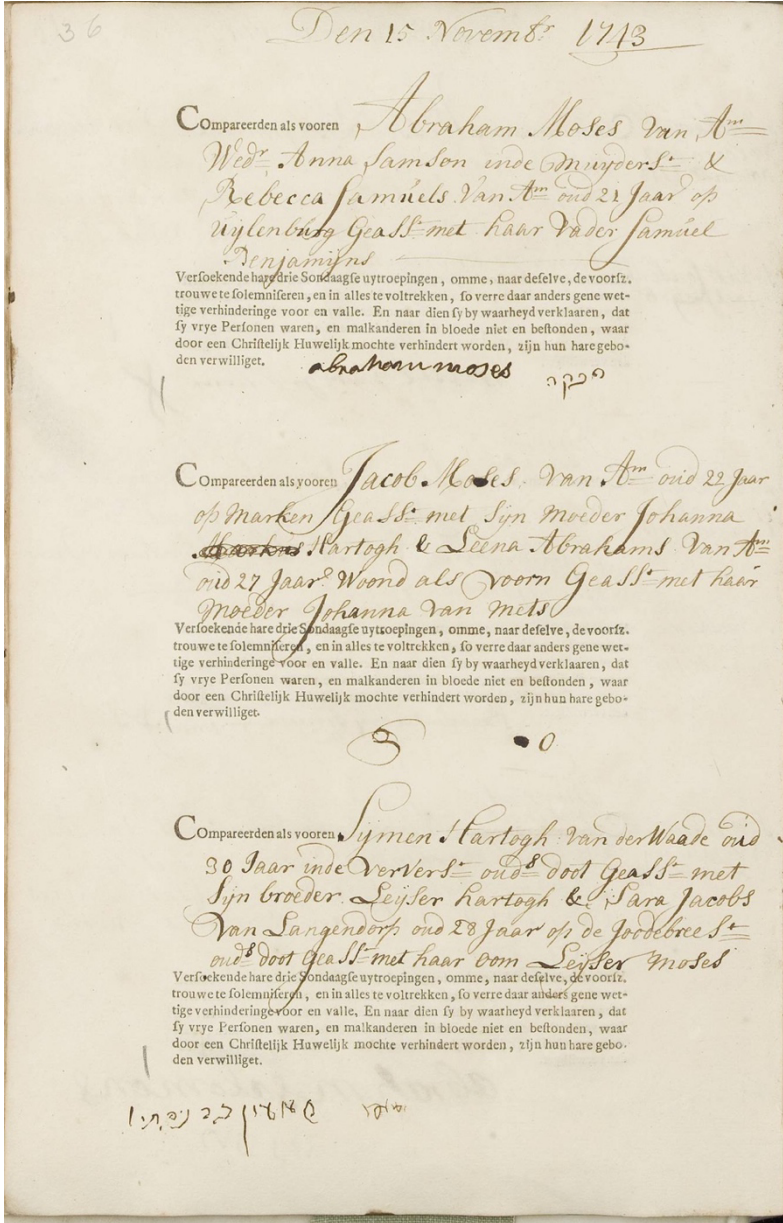 36
Den 15 Novemb:r 1743
Compareerden als vooren Abraham Moses van Am
Wedr Anna Samson inde Muyderst &
Rebecca Samuels van Am oud 21 Jaar op
uijlenburg Geasst met haar Vader Samuel
Benjamijns
Versoekende hare drie Sondaagse uytroepingen, omme, naar deselve, de voorsz.
trouwe te solemniseren, en in alles te voltrekken, so verre daar anders gene wet-
tige verhinderinge voor en valle. En naar dien sy by waarheyd verklaaren, dat
sy vrye Personen waren, en malkanderen in bloede niet en bestonden, waar
door een Christelijk Huwelijk mochte verhindert worden, zijn hun hare gebo-
den verwilliget.
abraham moses רבקה
Compareerden als vooren Jacob Moses van Am oud 22 Jaar
op Marken Geasst met Sijn Moeder Johanna
Hartogh & Leena Abrahams van Am
oud 27 Jaar Woond als voorn Geasst met haar
Moeder Johanna van Mets
Versoekende hare drie Sondaagse uytroepingen, omme, naar deselve, de voorsz.
trouwe te solemniseren, en in alles te voltrekken, so verre daar anders gene wet-
tige verhinderinge voor en valle. En naar dien sy by waarheyd verklaaren, dat
sy vrye Personen waren, en malkanderen in bloede niet en bestonden, waar
door een Christelijk Huwelijk mochte verhindert worden, zijn hun hare gebo-
den verwilliget.
Compareerden als vooren Sijmen Hartogh van der Waade oud
30 Jaar inde Ververst ouds doot Geasst met
Sijn broeder Leijser hartogh & Sara Jacobs
van Langendorp oud 28 Jaar op de Joodebreest
ouds doot Geasst met haar oom Leijser Moses
Versoekende hare drie Sondaagse uytroepingen, omme, naar deselve, de voorsz.
trouwe te solemniseren, en in alles te voltrekken, so verre daar anders gene wet-
tige verhinderinge voor en valle. En naar dien sy by waarheyd verklaaren, dat
sy vrye Personen waren, en malkanderen in bloede niet en bestonden, waar
door een Christelijk Huwelijk mochte verhindert worden, zijn hun hare gebo-
den verwilliget.